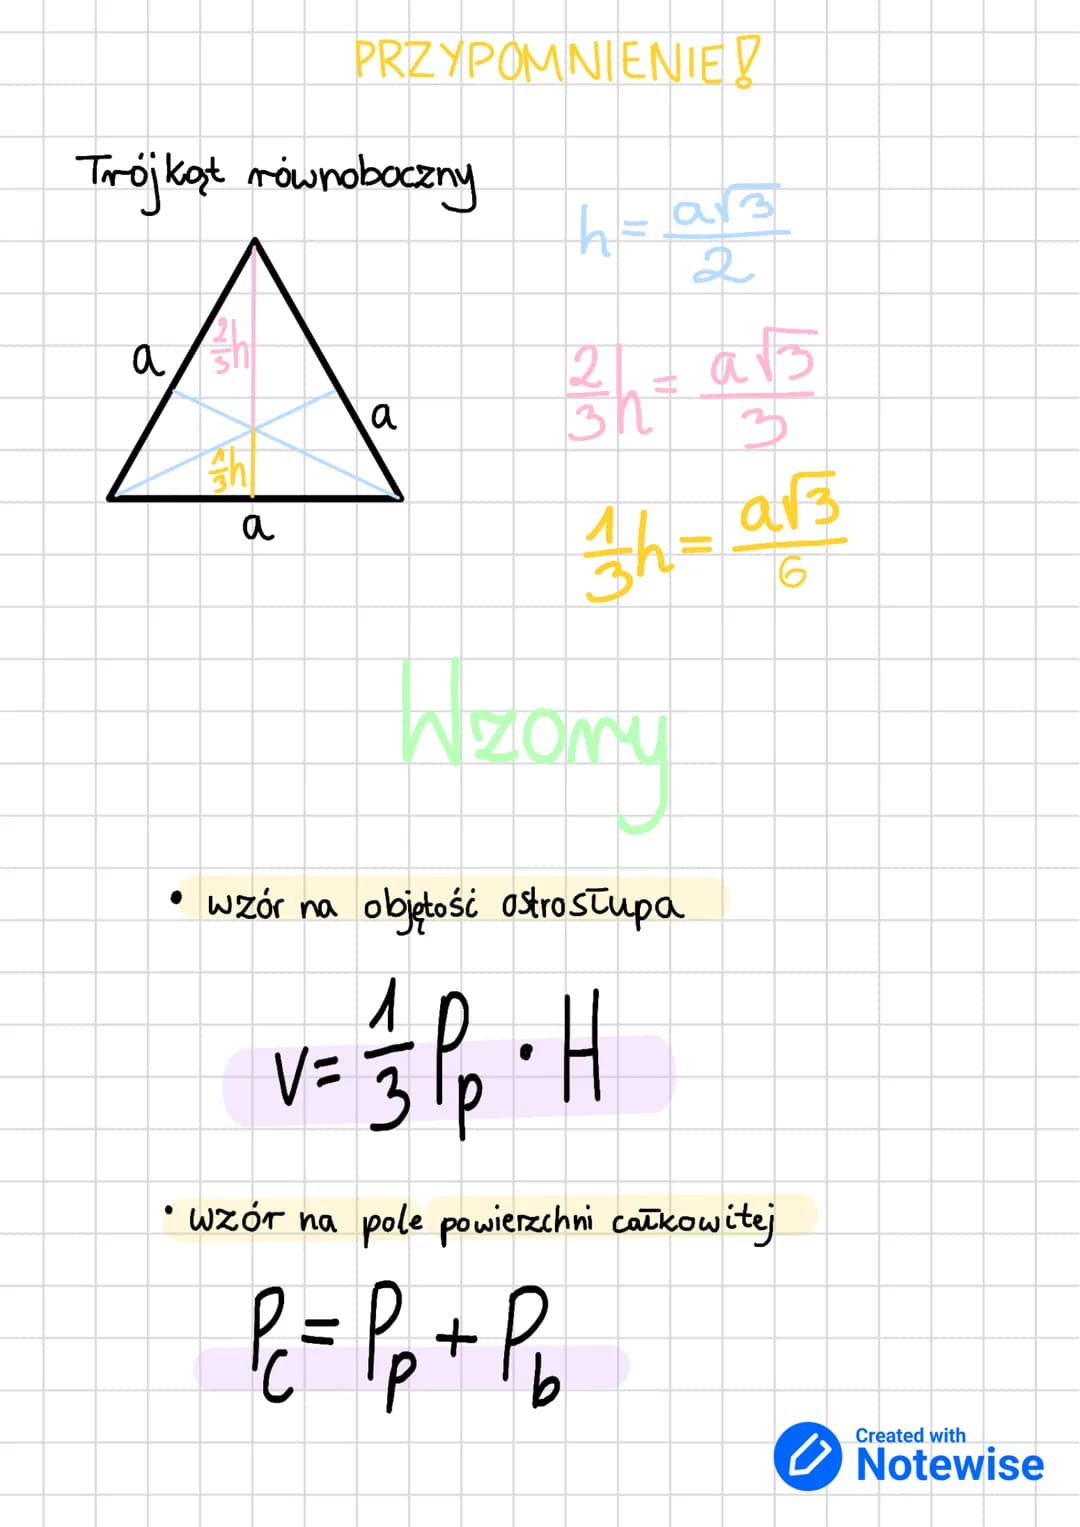 PRZYPOMNIENIE!
Trójkąt równoboczny
h = a√3/2
a
2/3h
a
2/3h = a√3/3
1/3h
a
1/3h = a√3/6
Wzory
• wzór na objętość ostrosłupa
V = 1/3 Pp · H
• wzór na pole powierzchni całkowitej
Pc = Pp + Pb
Created with
Notewise